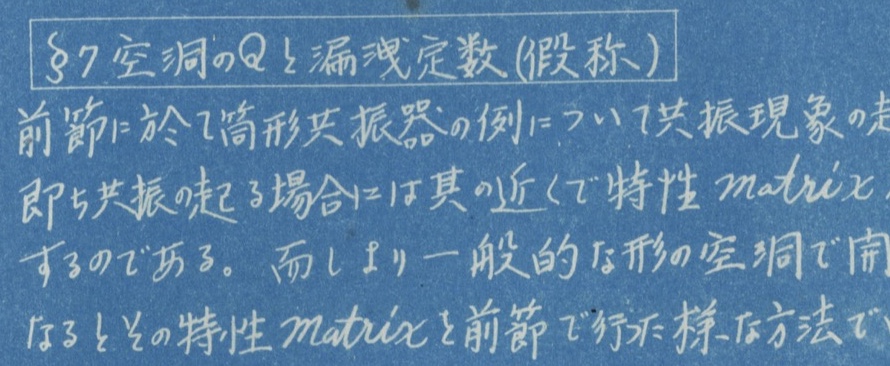 §7 空洞のQと漏洩定数(假称)
前節に於て筒形共振器の例について共振現象の起
即ち共振の起る場合には其の近くで特性matrix
するのである。而しより一般的な形の空洞で開
なるとその特性matrixを前節で行った様な方法で